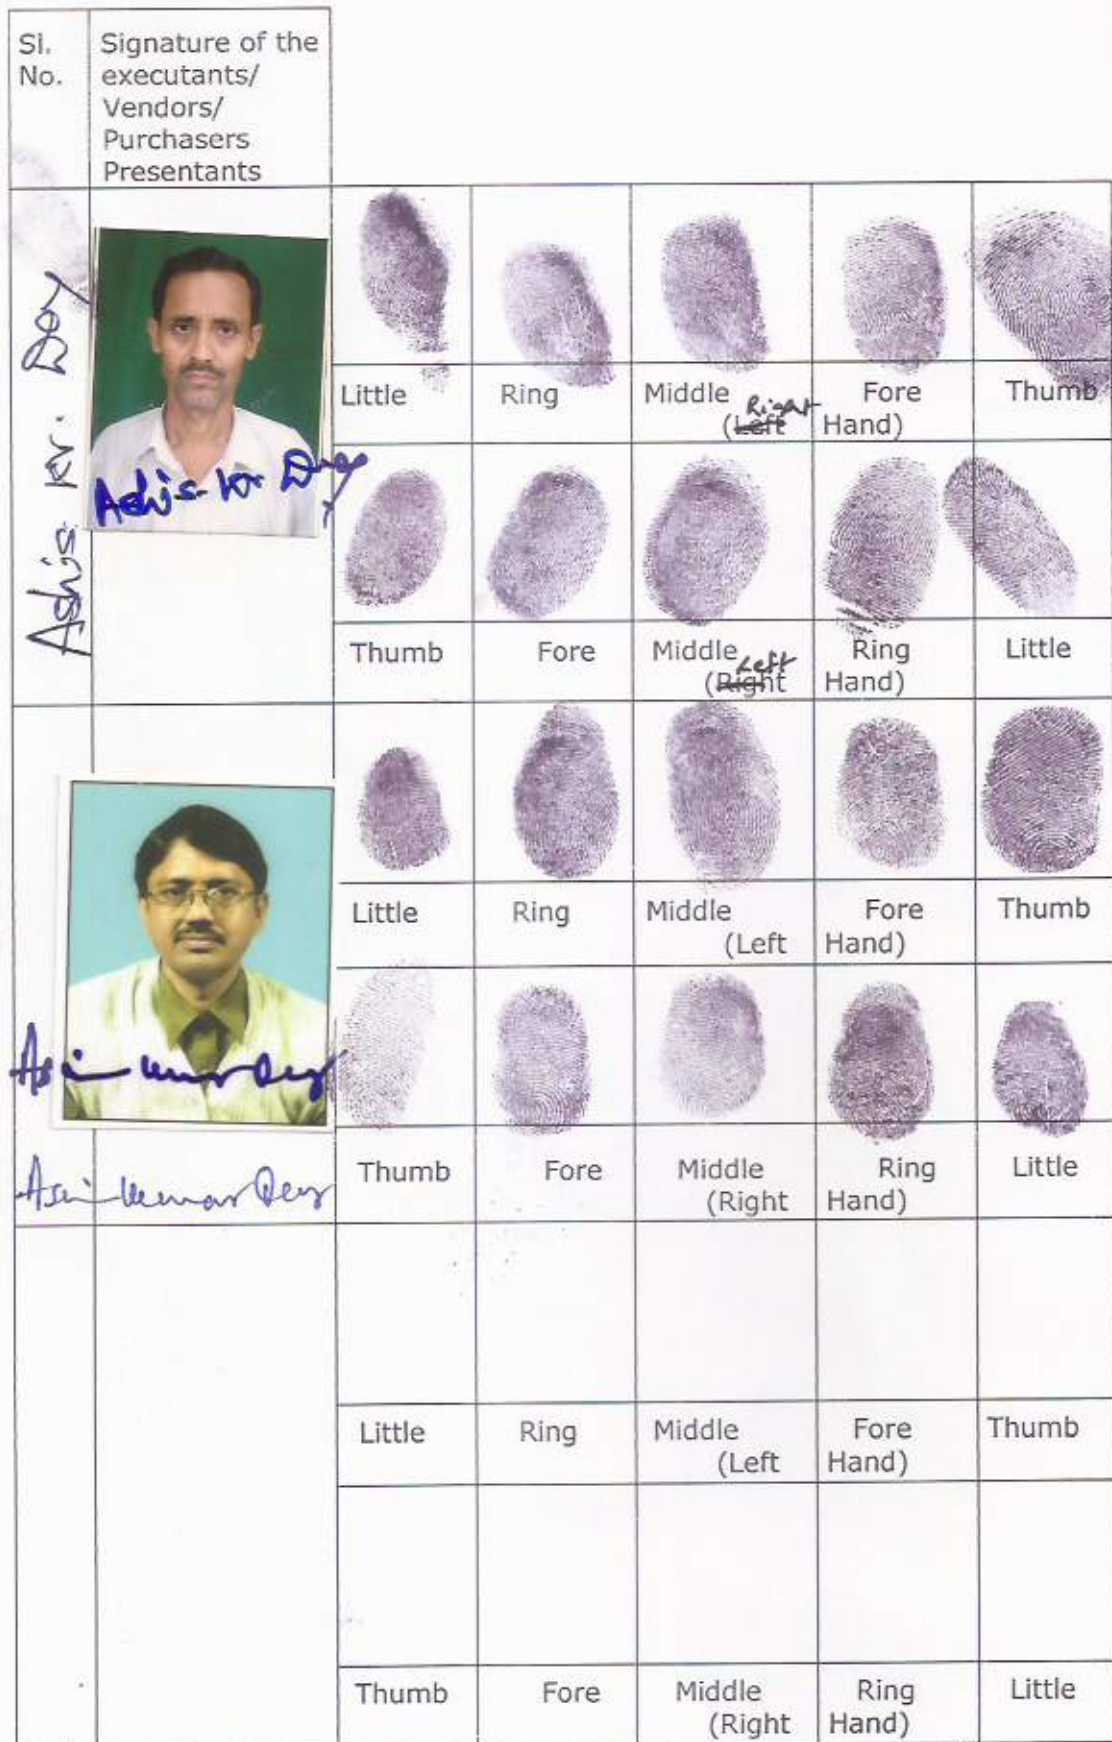 Sl. No.
Signature of the
executants/
Vendors/
Purchasers
Presentants
Ashis Kr. Dey
Ashis Kr Dey
Little Ring Middle Fore Thumb
(Left Right Hand)
Thumb Fore Middle Ring Little
(Right Left Hand)
Little Ring Middle Fore Thumb
(Left Hand)
Asim Kumar Dey
Asim Kumar Dey
Thumb Fore Middle Ring Little
(Right Hand)
Little Ring Middle Fore Thumb
(Left Hand)
Thumb Fore Middle Ring Little
(Right Hand)